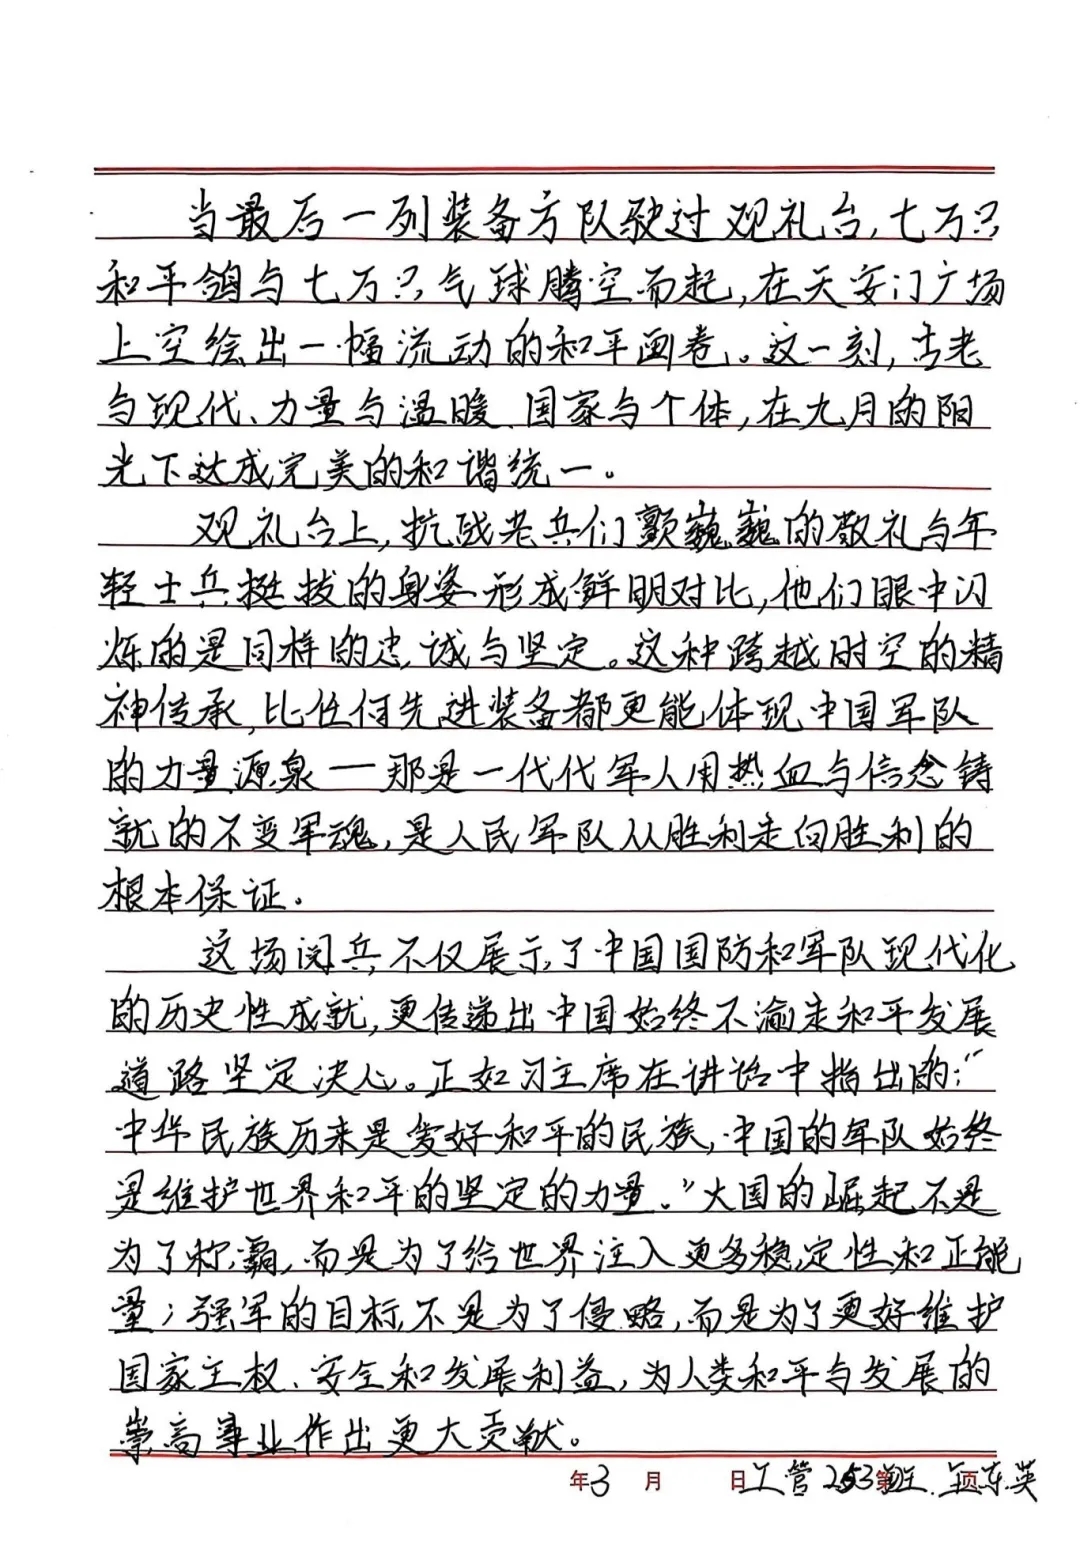 当最后一列装备方队驶过观礼台,七万只
和平鸽与七万只气球腾空而起,在天安门广场
上空绘出一幅流动的和平画卷。这一刻,古老
与现代、力量与温暖、国家与个体,在九月的阳
光下达成完美的和谐统一。
观礼台上,抗战老兵们颤巍巍的敬礼与年
轻士兵挺拔的身姿形成鲜明对比,他们眼中闪
烁的是同样的忠诚与坚定。这种跨越时空的精
神传承,比任何先进装备都更能体现中国军队
的力量源泉—那是一代代军人用热血与信念铸
就的不变军魂,是人民军队从胜利走向胜利的
根本保证。
这场阅兵不仅展示了中国国防和军队现代化
的历史性成就,更传递出中国始终不渝走和平发展
道路坚定决心。正如习主席在讲话中指出的:“
中华民族历来是爱好和平的民族,中国的军队始终
是维护世界和平的坚定的力量。”大国的崛起不是
为了称霸,而是为了给世界注入更多稳定性和正能
量;强军的目标不是为了侵略,而是为了更好维护
国家主权、安全和发展利益,为人类和平与发展的
崇高事业作出更大贡献。
年 3 月 日 工管253班 第 页 东英